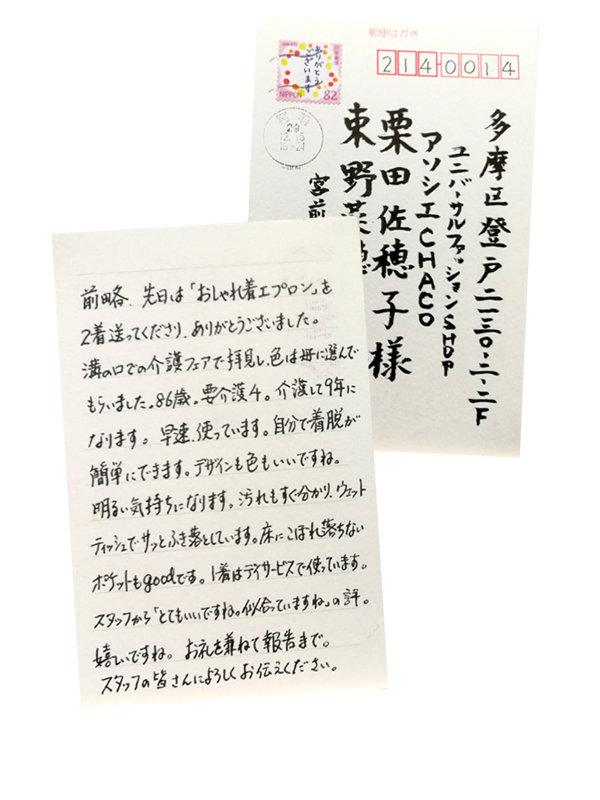 郵便はがき
2140014
ありがとう
ございます
NIPPON 82
29
12
多摩区登戸二一三〇・二・二F
ユニバーサルファッションSHOP
アソシエCHACO
栗田佐穂子様
東野
宮前
前略、先日は「おしゃれ着エプロン」を
2着送ってくださり、ありがとうございました。
溝の口での介護フェアで拝見し、色は母に選んで
もらいました。86歳。要介護4。介護して9年に
なります。早速、使っています。自分で着脱が
簡単にできます。デザインも色もいいですね。
明るい気持ちになります。汚れもすぐ分かり、ウェット
ティッシュでサッとふき落としています。床にこぼれ落ちない
ポケットもgoodです。1着はデイサービスで使っています。
スタッフから「とてもいいですね。似合っていますね」の評。
嬉しいですね。お礼を兼ねて報告まで。
スタッフの皆さんによろしくお伝えください。